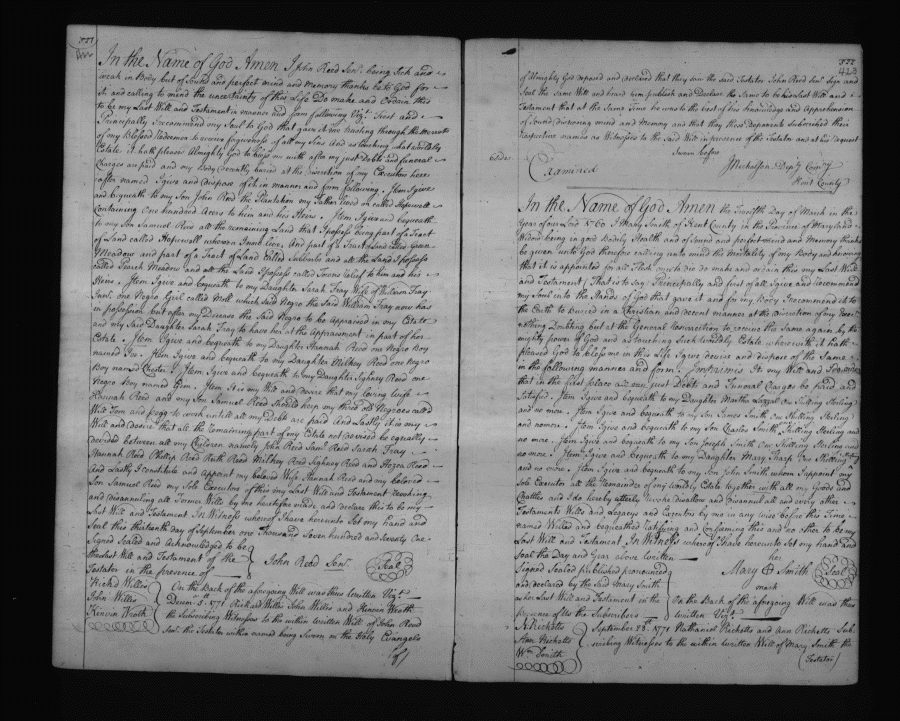 In the Name of God Amen I John Reed Senr. being Sick and
weak in Body but of Sound and perfect mind and Memory thanks be to God for
it and calling to mind the uncertainty of this Life Do make and Ordain this
to be my Last Will and Testament in manner and form following Vizt. First and
Principally I recommend my Soul to God that gave it me trusting through the merits
of my Blessed Redeemer to receive forgiveness of all my Sins And as touching what worldly
Estate it hath pleased Almighty God to bless me with after my just Debts and funeral
Charges are paid and my Body decently buried at the discretion of my Executors here
after named I give and dispose of it in manner and form following. Item I give
and bequeath to my Son John Reed the Plantation my Father lived on called Hopewell
Containing One hundred Acres to him and his Heirs. Item I give and bequeath
to my Son Samuel Reed all the remaining Land that I possess being part of a Tract
of Land called Hopewell whereon I now live, And part of a Tract
Meadow and part of a Tract of Land Called and all the Land I possess
called Peach Meadow and all the Land I possess called Relief to him and his
Heirs. Item I give and bequeath to my Daughter Sarah Fray Wife of William Fray
one Negro Girl called Moll which said Negro the Said William Fray now has
in possession but after my Decease the Said Negro to be appraised in my Estate
and my Said Daughter Sarah Fray to have her at the Appraisment in part of her
Estate. Item I give and bequeath to my Daughter Hannah Reed one Negro Boy
named Item I give and bequeath to my Daughter Milkey Reed one Negro
Boy named Chester Item I give and bequeath to my Daughter Sighney Reed one
Negro Boy named Item it is my Will and desire that my loving Wife
Hannah Reed and my Son Samuel Reed Should keep my three old Negroes called
Will Tom and Pegg to work untill all my Debts are paid And Lastly it is my
Will and desire that all the remaining part of my Estate not devised be equally
devided between all my Children namely John Reed Saml. Reed Sarah Fray
Hannah Reed Philip Reed Ruth Reed Milkey Reed Sighney Reed and Hozea Reed
And Lastly I constitute and appoint my beloved Wife Hannah Reed and my beloved
Son Samuel Reed my Sole Executors of this my Last Will and Testament Revoking
and disannulling all Former Wills by me heretofore made and declare this to be my
Last Will and Testament In Witness whereof I have hereunto Set my hand and
Seal this thirteenth day of September one Thousand Seven hundred and Seventy One
Signed Sealed and Acknowledged to be
the Last Will and Testament of the
Testator in the presence of
John Reed Senr. Seal
Richd Willis
John Willis
Kinvin Wroth
On the Back of the aforegoing Will was thus written Vizt.
Decem. 5th 1771 Richard Willis John Willis and Kinvin Wroth
the Subscribing Witnesses to the within written Will of John Reed
Senr. the Testator within named being Sworn on the Holy Evangels
of
423
of Almighty God deposed and declared that they saw the said Testator John Reed Senr. Sign and
Seal the same Will and heard him publish and Declare the Same to be his Last Will and
Testament that at the Same Time he was to the best of their knowledge and Apprehension
of Sound disposing mind and Memory and that they these Deponents Subscribed their
respective names as Witnesses to the Said Will in presence of the Testator and at his request
Sworn before
Examined
J Nicholson Depy. Comry.
Kent County
In the Name of God Amen the Twelfth Day of March in the
Year of our Lord 1760 I Mary Smith of Kent County in the Province of Maryland
Widow being in good Bodily Health and of Sound and perfect mind and Memory thanks
be given unto God therefore calling unto mind the Mortality of my Body and knowing
that it is appointed for all Men once to Die do make and ordain this my Last Will
and Testament (That is to Say) Principally and first of all I give and recommend
my Soul into the Hands of God that gave it and for my Body I recommend it to
the Earth to be buried in a Christian and decent manner at the discretion of my Exec
nothing Doubting but at the General Resurrection to receive the Same again by the
mighty power of God and as touching Such Worldly Estate wherewith it hath
pleased God to bless me in this Life I give devise and dispose of the Same
in the following manner and form. Imprimis It is my Will and I do order
that in the first place all my just Debts and Funeral Charges be paid and
Satisfied. Item I give and bequeath to my Daughter Martha One Shilling Sterling
and no more. Item I give and bequeath to my Son James Smith One Shilling Sterling
and no more. Item I give and bequeath to my Son Charles Smith Shilling Sterling and
no more. Item I give and bequeath to my Son Joseph Smith One Shilling Sterling and
no more. Item I give and bequeath to my Daughter Mary Sharp One Shilling Sterling
and no more. Item I give and bequeath to my Son John Smith whom I appoint my
Sole Executor all the Remainder of my worldly Estate together with all my Goods and
Chattles and I do hereby utterly revoke disallow and disannul all and every other
Testaments Wills and Legacys and Executors by me in any wise before this Time
named Willed and bequeathed ratifying and confirming this and no other to be my
Last Will and Testament In Witness whereof I have hereunto Set my hand and
Seal the Day and Year above Written
Signed Sealed published pronounced
and declared by the Said Mary Smith
as her Last Will and Testament in the
presence of Us the Subscribers
her
Mary Smith Seal
mark
N. Ricketts
Ann Ricketts
Wm. Smith
On the Back of the aforegoing Will was thus
written Vizt.
September 28th 1771 Nathaniel Ricketts and Ann Ricketts Sub
scribing Witnesses to the within written Will of Mary Smith the
Testator